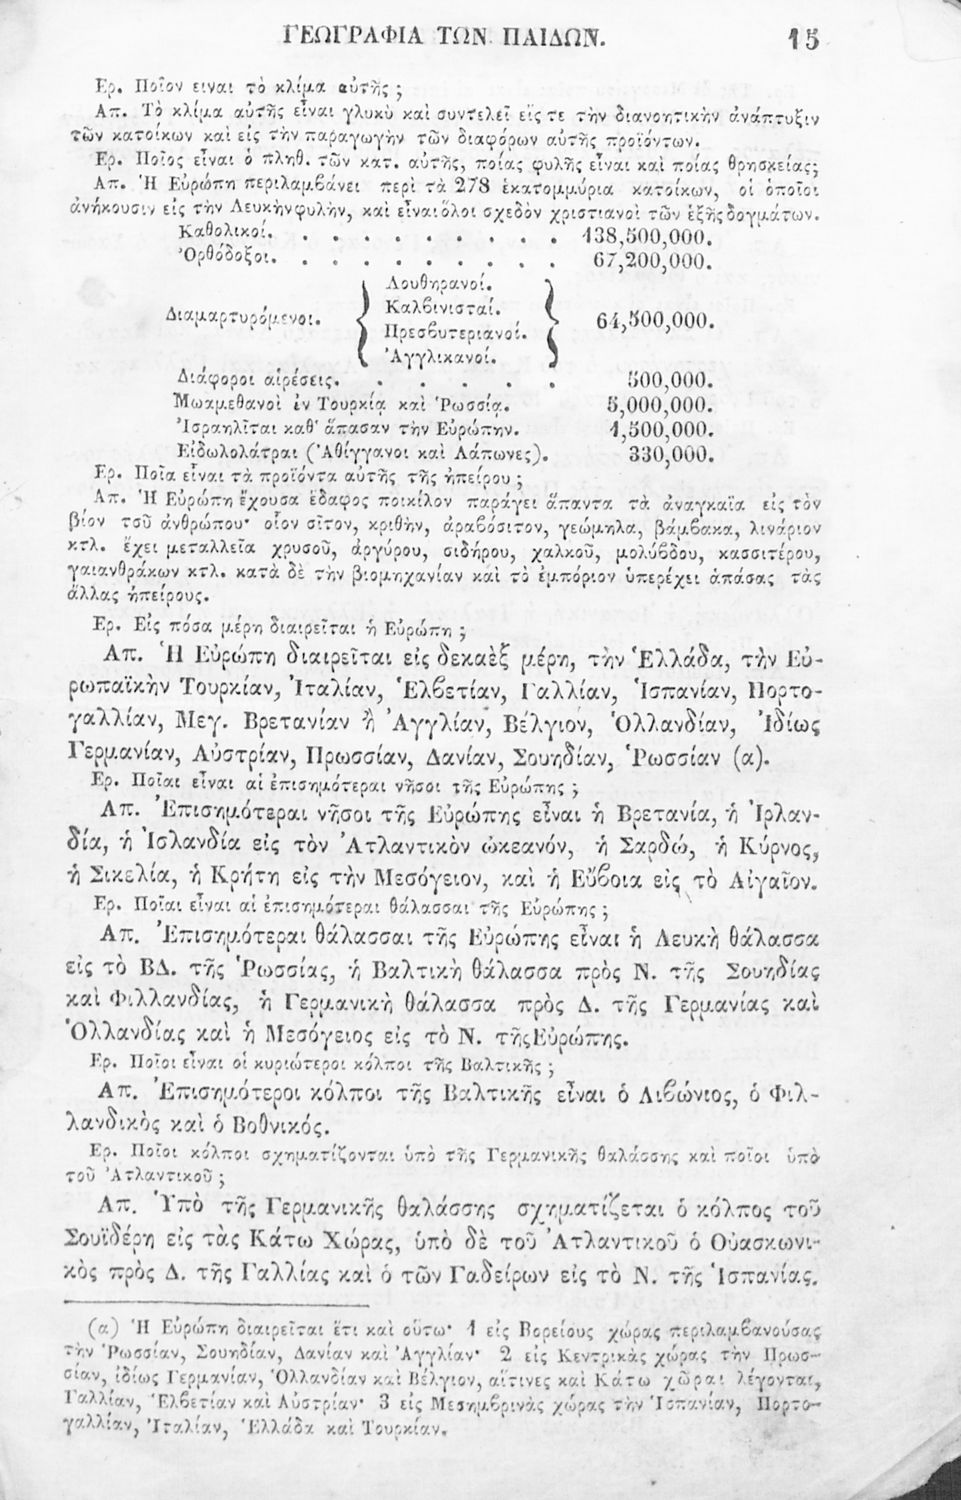 ΓΕΩΓΡΑΦΙΑ ΤΩΝ ΠΑΙΔΩΝ. 15
Ερ. Ποῖον ειναι τὸ κλίμα αὐτῆς ;
Απ. Τὸ κλίμα αὐτῆς εἶναι γλυκὺ καὶ συντελεῖ εἴς τε τὴν διανοητικὴν ἀνάπτυξιν
τῶν κατοίκων καὶ εἰς τὴν παραγωγὴν τῶν διαφόρων αὐτῆς προϊόντων.
Ερ. Ποῖος εἶναι ὁ πληθ. τῶν κατ. αὐτῆς, ποίας φυλῆς εἶναι καὶ ποίας θρησκείας;
Απ. Ἡ Εὐρώπη περιλαμβάνει περὶ τὰ 278 ἑκατομμύρια κατοίκων, οἱ ὁποῖοι
ἀνήκουσιν εἰς τὴν Λευκὴν φυλὴν, καὶ εἶναι ὅλοι σχεδὸν χριστιανοὶ τῶν ἑξῆς δογμάτων.
Καθολικοί. . . . . . . . . . 138,500,000.
Ὀρθόδοξοι. . . . . . . . . . 67,200,000.
Λουθηρανοί.
Καλβινισταί.
Διαμαρτυρόμενοι. 64,500,000.
Πρεσβυτεριανοί.
Ἀγγλικανοί.
Διάφοροι αἱρέσεις. . . . . . 500,000.
Μωαμεθανοὶ ἐν Τουρκίᾳ καὶ Ῥωσσίᾳ. 5,000,000.
Ἰσραηλῖται καθ' ἅπασαν τὴν Εὐρώπην. 1,500,000.
Εἰδωλολάτραι (Ἀθίγγανοι καὶ Λάπωνες). 330,000.
Ερ. Ποῖα εἶναι τὰ προϊόντα αὐτῆς τῆς ἠπείρου ;
Απ. Ἡ Εὐρώπη ἔχουσα ἔδαφος ποικίλον παράγει ἅπαντα τὰ ἀναγκαῖα εἰς τὸν
βίον τοῦ ἀνθρώπου· οἷον σῖτον, κριθὴν, ἀραβόσιτον, γεώμηλα, βάμβακα, λινάριον
κτλ. ἔχει μεταλλεῖα χρυσοῦ, ἀργύρου, σιδήρου, χαλκοῦ, μολύβδου, κασσιτέρου,
γαιανθράκων κτλ. κατὰ δὲ τὴν βιομηχανίαν καὶ τὸ ἐμπόριον ὑπερέχει ἁπάσας τὰς
ἄλλας ἠπείρους.
Ερ. Εἰς πόσα μέρη διαιρεῖται ἡ Εὐρώπη ;
Απ. Ἡ Εὐρώπη διαιρεῖται εἰς δεκαὲξ μέρη, τὴν Ἑλλάδα, τὴν Εὐ-
ρωπαϊκὴν Τουρκίαν, Ἰταλίαν, Ἑλβετίαν, Γαλλίαν, Ἱσπανίαν, Πορτο-
γαλλίαν, Μεγ. Βρετανίαν ἢ Ἀγγλίαν, Βέλγιον, Ὁλλανδίαν, Ἰδίως
Γερμανίαν, Αὐστρίαν, Πρωσσίαν, Δανίαν, Σουηδίαν, Ῥωσσίαν (α).
Ερ. Ποῖαι εἶναι αἱ ἐπισημότεραι νῆσοι τῆς Εὐρώπης ;
Απ. Ἐπισημότεραι νῆσοι τῆς Εὐρώπης εἶναι ἡ Βρετανία, ἡ Ἰρλαν-
δία, ἡ Ἰσλανδία εἰς τὸν Ἀτλαντικὸν ὠκεανόν, ἡ Σαρδώ, ἡ Κύρνος,
ἡ Σικελία, ἡ Κρήτη εἰς τὴν Μεσόγειον, καὶ ἡ Εὔβοια εἰς τὸ Αἰγαῖον.
Ερ. Ποῖαι εἶναι αἱ ἐπισημότεραι θάλασσαι τῆς Εὐρώπης ;
Απ. Ἐπισημότεραι θάλασσαι τῆς Εὐρώπης εἶναι ἡ Λευκὴ θάλασσα
εἰς τὸ ΒΔ. τῆς Ῥωσσίας, ἡ Βαλτικὴ θάλασσα πρὸς Ν. τῆς Σουηδίας
καὶ Φιλλανδίας, ἡ Γερμανικὴ θάλασσα πρὸς Δ. τῆς Γερμανίας καὶ
Ὁλλανδίας καὶ ἡ Μεσόγειος εἰς τὸ Ν. τῆς Εὐρώπης.
Ερ. Ποῖοι εἶναι οἱ κυριώτεροι κόλποι τῆς Βαλτικῆς ;
Απ. Ἐπισημότεροι κόλποι τῆς Βαλτικῆς εἶναι ὁ Λιβώνιος, ὁ Φιλ-
λανδικὸς καὶ ὁ Βοθνικός.
Ερ. Ποῖοι κόλποι σχηματίζονται ὑπὸ τῆς Γερμανικῆς θαλάσσης καὶ ποῖοι ὑπὸ
τοῦ Ἀτλαντικοῦ ;
Απ. Ὑπὸ τῆς Γερμανικῆς θαλάσσης σχηματίζεται ὁ κόλπος τοῦ
Σουϊδέρη εἰς τὰς Κάτω Χώρας, ὑπὸ δὲ τοῦ Ἀτλαντικοῦ ὁ Οὐασκωνι-
κὸς πρὸς Δ. τῆς Γαλλίας καὶ ὁ τῶν Γαδείρων εἰς τὸ Ν. τῆς Ἱσπανίας.
(α) Ἡ Εὐρώπη διαιρεῖται ἔτι καὶ οὕτω· 1 εἰς Βορείους χώρας περιλαμβανούσας
τὴν Ῥωσσίαν, Σουηδίαν, Δανίαν καὶ Ἀγγλίαν· 2 εἰς Κεντρικὰς χώρας τὴν Πρωσ-
σίαν, ἰδίως Γερμανίαν, Ὁλλανδίαν καὶ Βέλγιον, αἵτινες καὶ Κάτω χῶραι λέγονται,
Γαλλίαν, Ἑλβετίαν καὶ Αὐστρίαν· 3 εἰς Μεσημβρινὰς χώρας τὴν Ἱσπανίαν, Πορτο-
γαλλίαν, Ἰταλίαν, Ἑλλάδα καὶ Τουρκίαν.